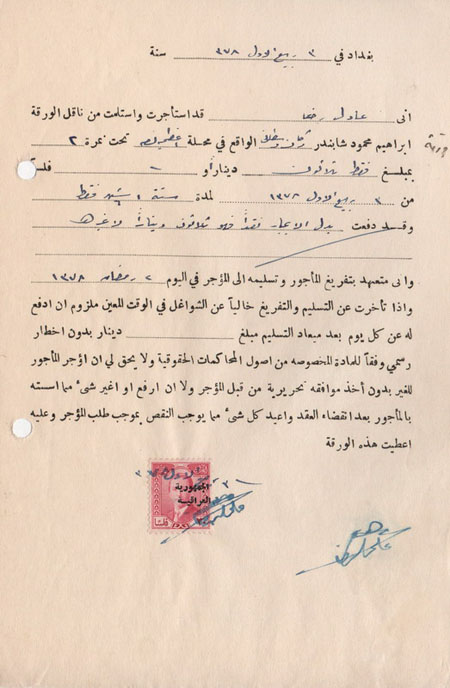 بغداد في ٣ ربيع الاول ٣٧٨ سنة
انى عادل رضا قد استأجرت واستلمت من ناقل الورقة
ابراهيم محمود شابندر الواقع في محلة تحت نمرة ٢
بمبلغ فقط ثلاثون دينار أو - فلساً
من ٣ ربيع الاول ١٣٧٨ لمدة ستة اشهر فقط
وقد دفعت بدل الايجار نقداً فهو ثلاثون ديناراً لا غيرها
وانى متعهد بتفريغ المأجور وتسليمه الى المؤجر في اليوم ٢ رمضان ١٣٧٨
واذا تأخرت عن التسليم والتفريغ خالياً عن الشواغل في الوقت المعين ملزوم ان ادفع
له عن كل يوم بعد ميعاد التسليم مبلغ دينار بدون اخطار
رسمي وفقاً للمادة المخصوصه من اصول المحاكمات الحقوقية ولا يحق لي ان اؤجر المأجور
للغير بدون أخذ موافقه تحريرية من قبل المؤجر ولا ان ارفع او اغير شىء مما اسسته
بالمأجور بعد انقضاء العقد واعيد كل شىء مما يوجب النقص بموجب طلب المؤجر وعليه
اعطيت هذه الورقة
الجمهورية
العراقية